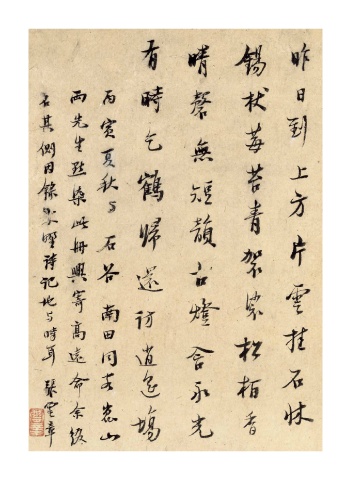 昨日到上方片雲挂石牀
錫杖莓苔青袈裟松柏香
晴磬無短韻古燈含永光
有時乞鶴歸還訪逍遙場
丙寅夏秋与石谷南田同客崑山
兩先生點染此冊興寄高遠命余綴
名其側因錄東野詩記地与時耳 張雲章